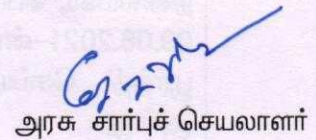 அரசு சார்புச் செயலாளர்